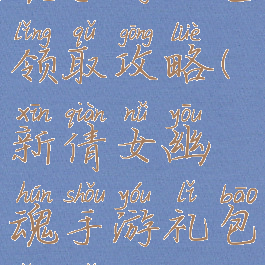 lǐng qǔ gōng lüè
领取攻略(
xīn qiàn nǚ yōu
新倩女幽
hún shǒu yóu lǐ bāo
魂手游礼包